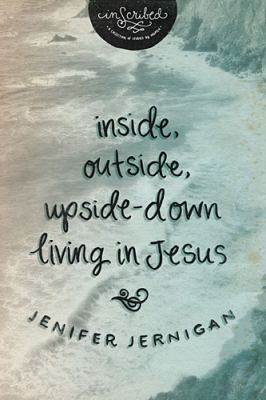 inScribed
A COLLECTION OF STUDIES BY WOMEN
inside,
outside,
upside-down
living in Jesus
JENIFER JERNIGAN